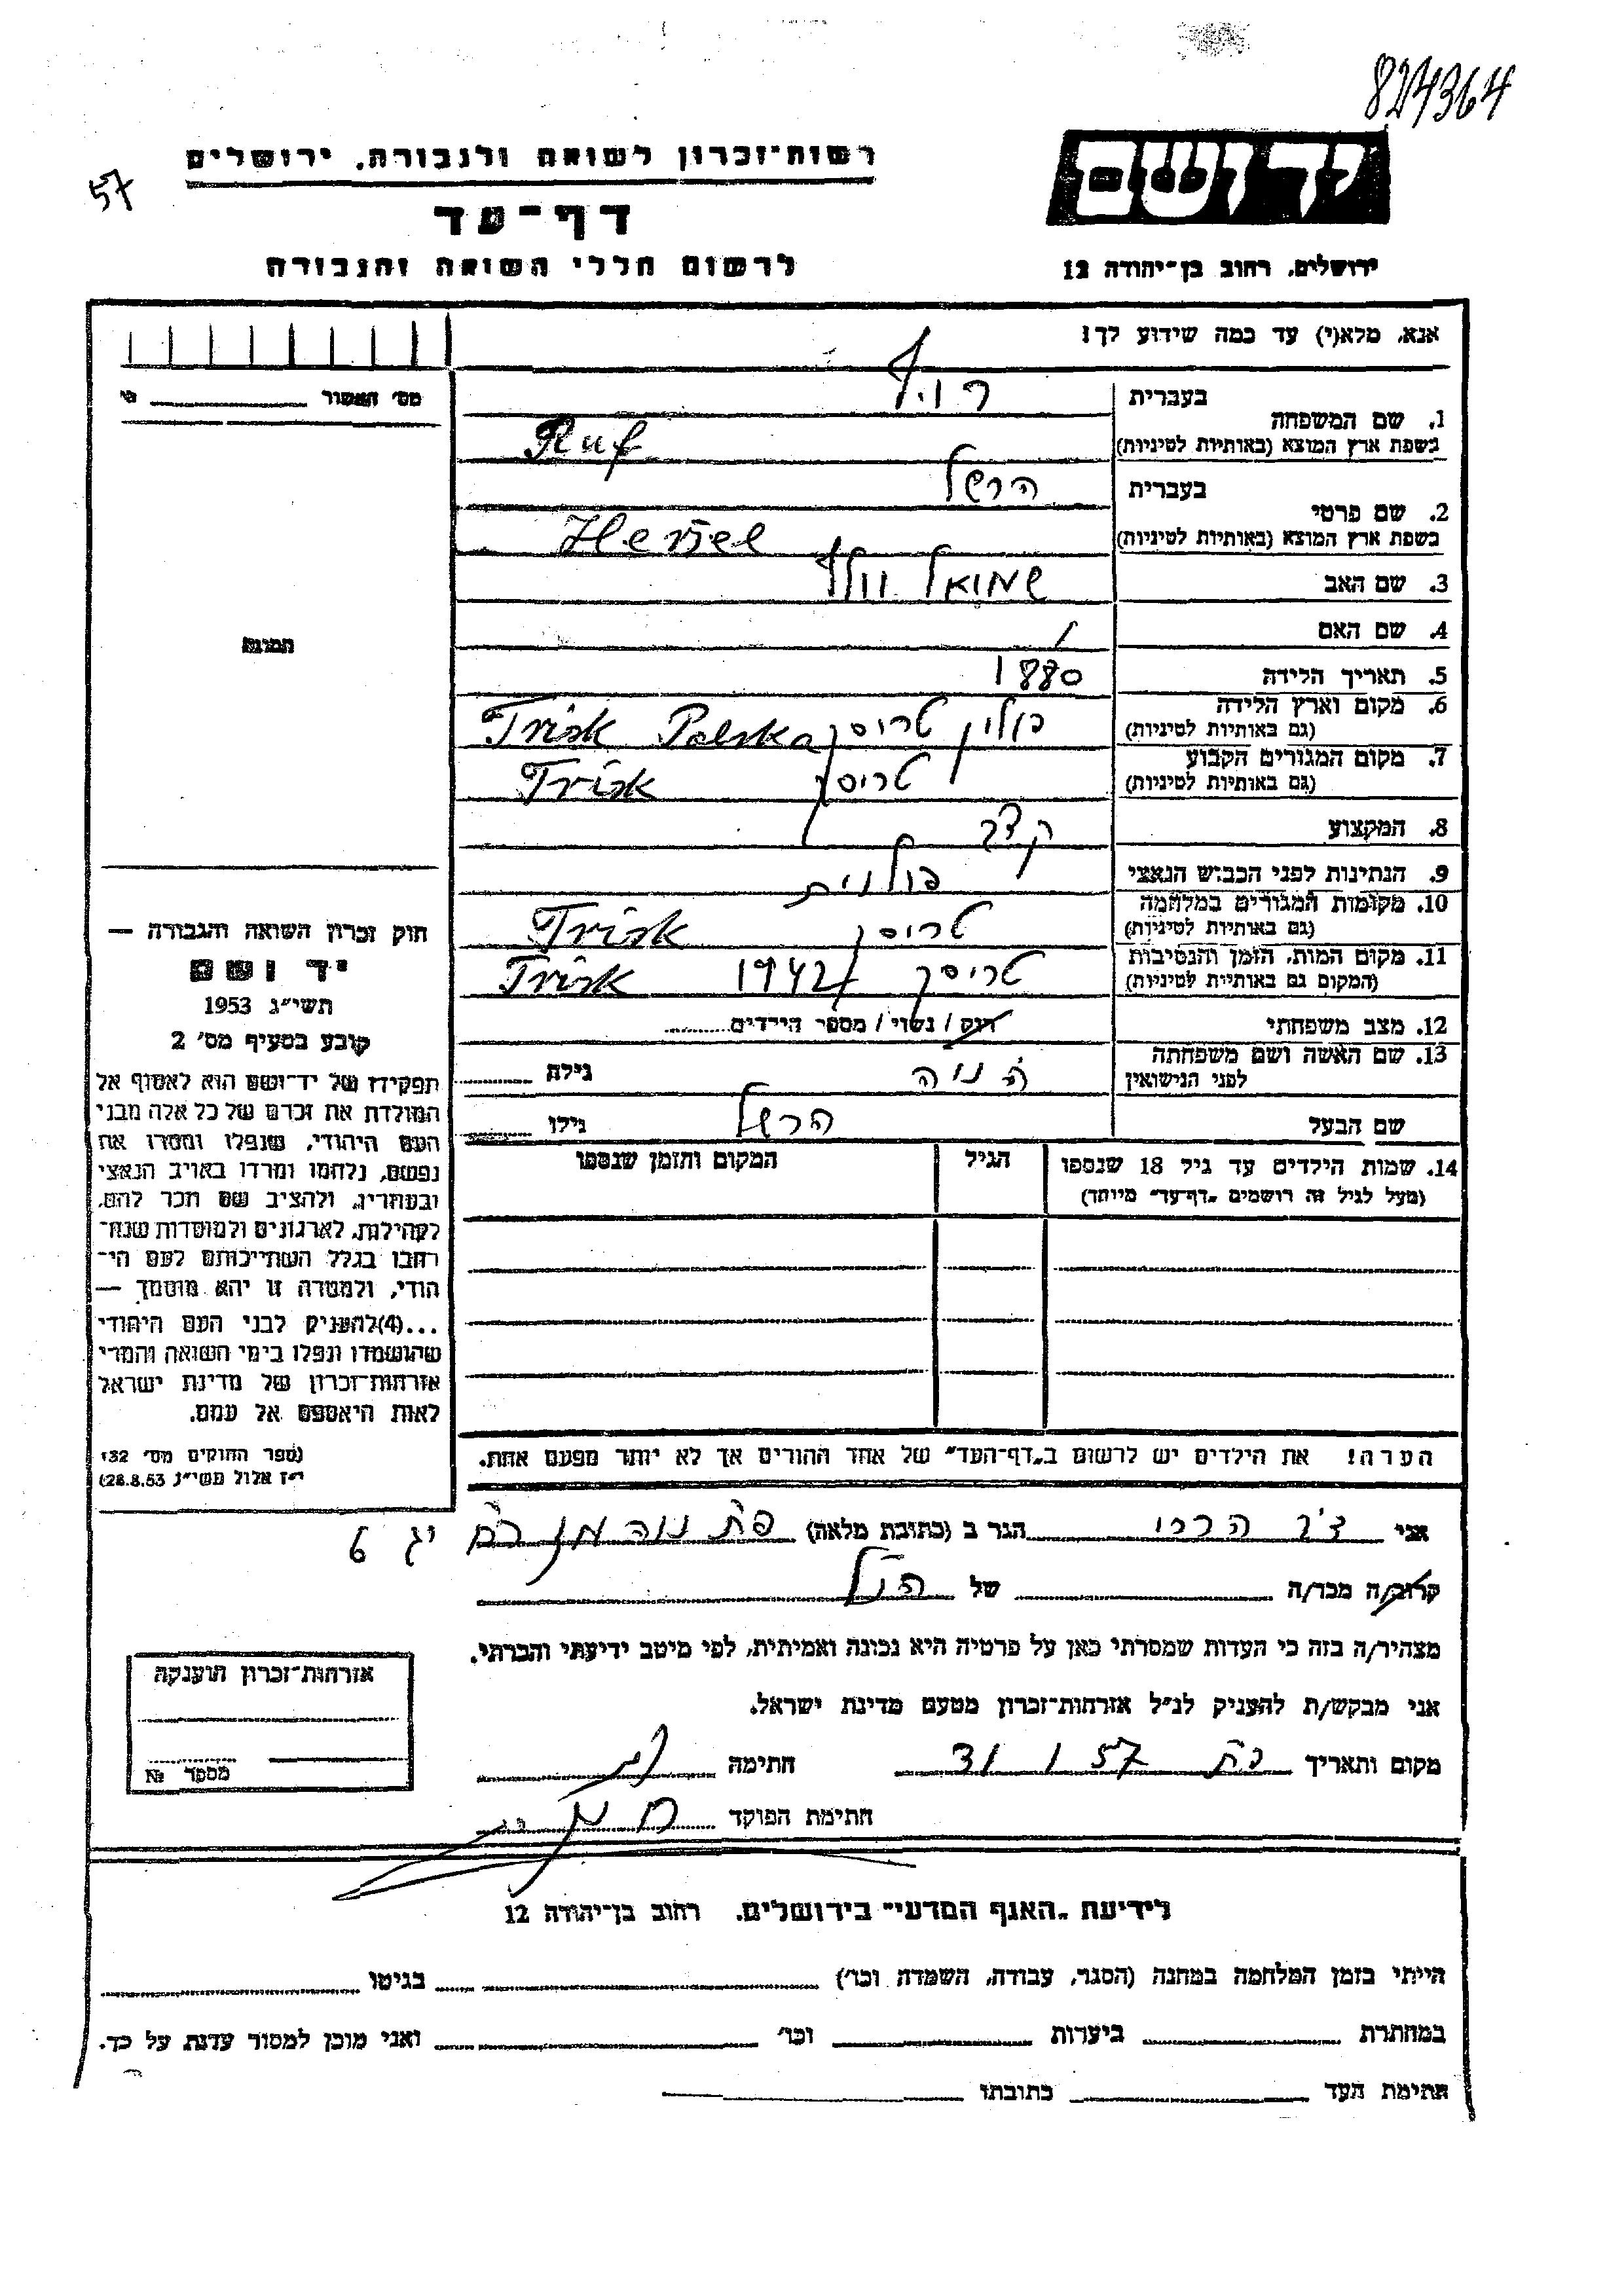 824364
57
יד ושם
ירושלים, רחוב בן־יהודה 12
רשות־זכרון לשואה ולגבורה, ירושלים
דף־עד
לרשום חללי השואה והגבורה
אנא, מלא(י) עד כמה שידוע לך!
מס' האשור
1. שם המשפחה
בעברית רוף
בשפת ארץ המוצא (באותיות לטיניות) Ruf
2. שם פרטי
בעברית הרשל
בשפת ארץ המוצא (באותיות לטיניות) Heršel
3. שם האב שמואל וולף
4. שם האם /
5. תאריך הלידה 1880
6. מקום וארץ הלידה פולין טריסק Trisk Polska
(גם באותיות לטיניות)
7. מקום המגורים הקבוע טריסק Trisk
(גם באותיות לטיניות)
8. המקצוע קצב
9. הנתינות לפני הכבוש הנאצי פולנית
10. מקומות המגורים במלחמה טריסק Trisk
(גם באותיות לטיניות)
11. מקום המות, הזמן והנסיבות טריסק 1942 Trisk
(המקום גם באותיות לטיניות)
12. מצב משפחתי רוק / נשוי / מספר הילדים
13. שם האשה ושם משפחתה חנוה גילה
לפני הנישואין
שם הבעל הרשל גילו
14. שמות הילדים עד גיל 18 שנספו הגיל המקום והזמן שנספו
(מעל לגיל זה רושמים "דף־עד" מיוחד)
הערה! את הילדים יש לרשום ב"דף־העד" של אחד ההורים אך לא יותר מפעם אחת.
תמונה
חוק זכרון השואה והגבורה —
יד ושם
תשי"ג 1953
קובע בסעיף מס' 2
תפקידו של יד־ושם הוא לאסוף אל
המולדת את זכרם של כל אלה מבני
העם היהודי, שנפלו ומסרו את
נפשם, נלחמו ומרדו באויב הנאצי
ובעוזריו, ולהציב שם וזכר להם,
לקהילות, לארגונים ולמוסדות שנח־
רבו בגלל השתייכותם לעם הי־
הודי, ולמטרה זו יהא מוסמך —
...(4)להעניק לבני העם היהודי
שהושמדו ונפלו בימי השואה והמרי
אזרחות־זכרון של מדינת ישראל
לאות היאספם אל עמם.
(ספר החוקים מס' 132
י"ז אלול תשי"ג 28.8.53)
אני הגר ב (כתובת מלאה) פת נוה
קרוב/ה מכר/ה של הנ"ל
מצהיר/ה בזה כי העדות שמסרתי כאן על פרטיה היא נכונה ואמיתית, לפי מיטב ידיעתי והכרתי.
אני מבקש/ת להעניק לנ"ל אזרחות־זכרון מטעם מדינת ישראל.
מקום ותאריך פת 31 1 57 חתימה
חתימת הפוקד
אזרחות־זכרון הוענקה
מספר №
לידיעת "האגף המדעי" בירושלים. רחוב בן־יהודה 12
הייתי בזמן המלחמה במחנה (הסגר, עבודה, השמדה וכו') בגיטו
במחתרת ביערות וכו' ואני מוכן למסור עדות על כך.
חתימת העד כתובתו